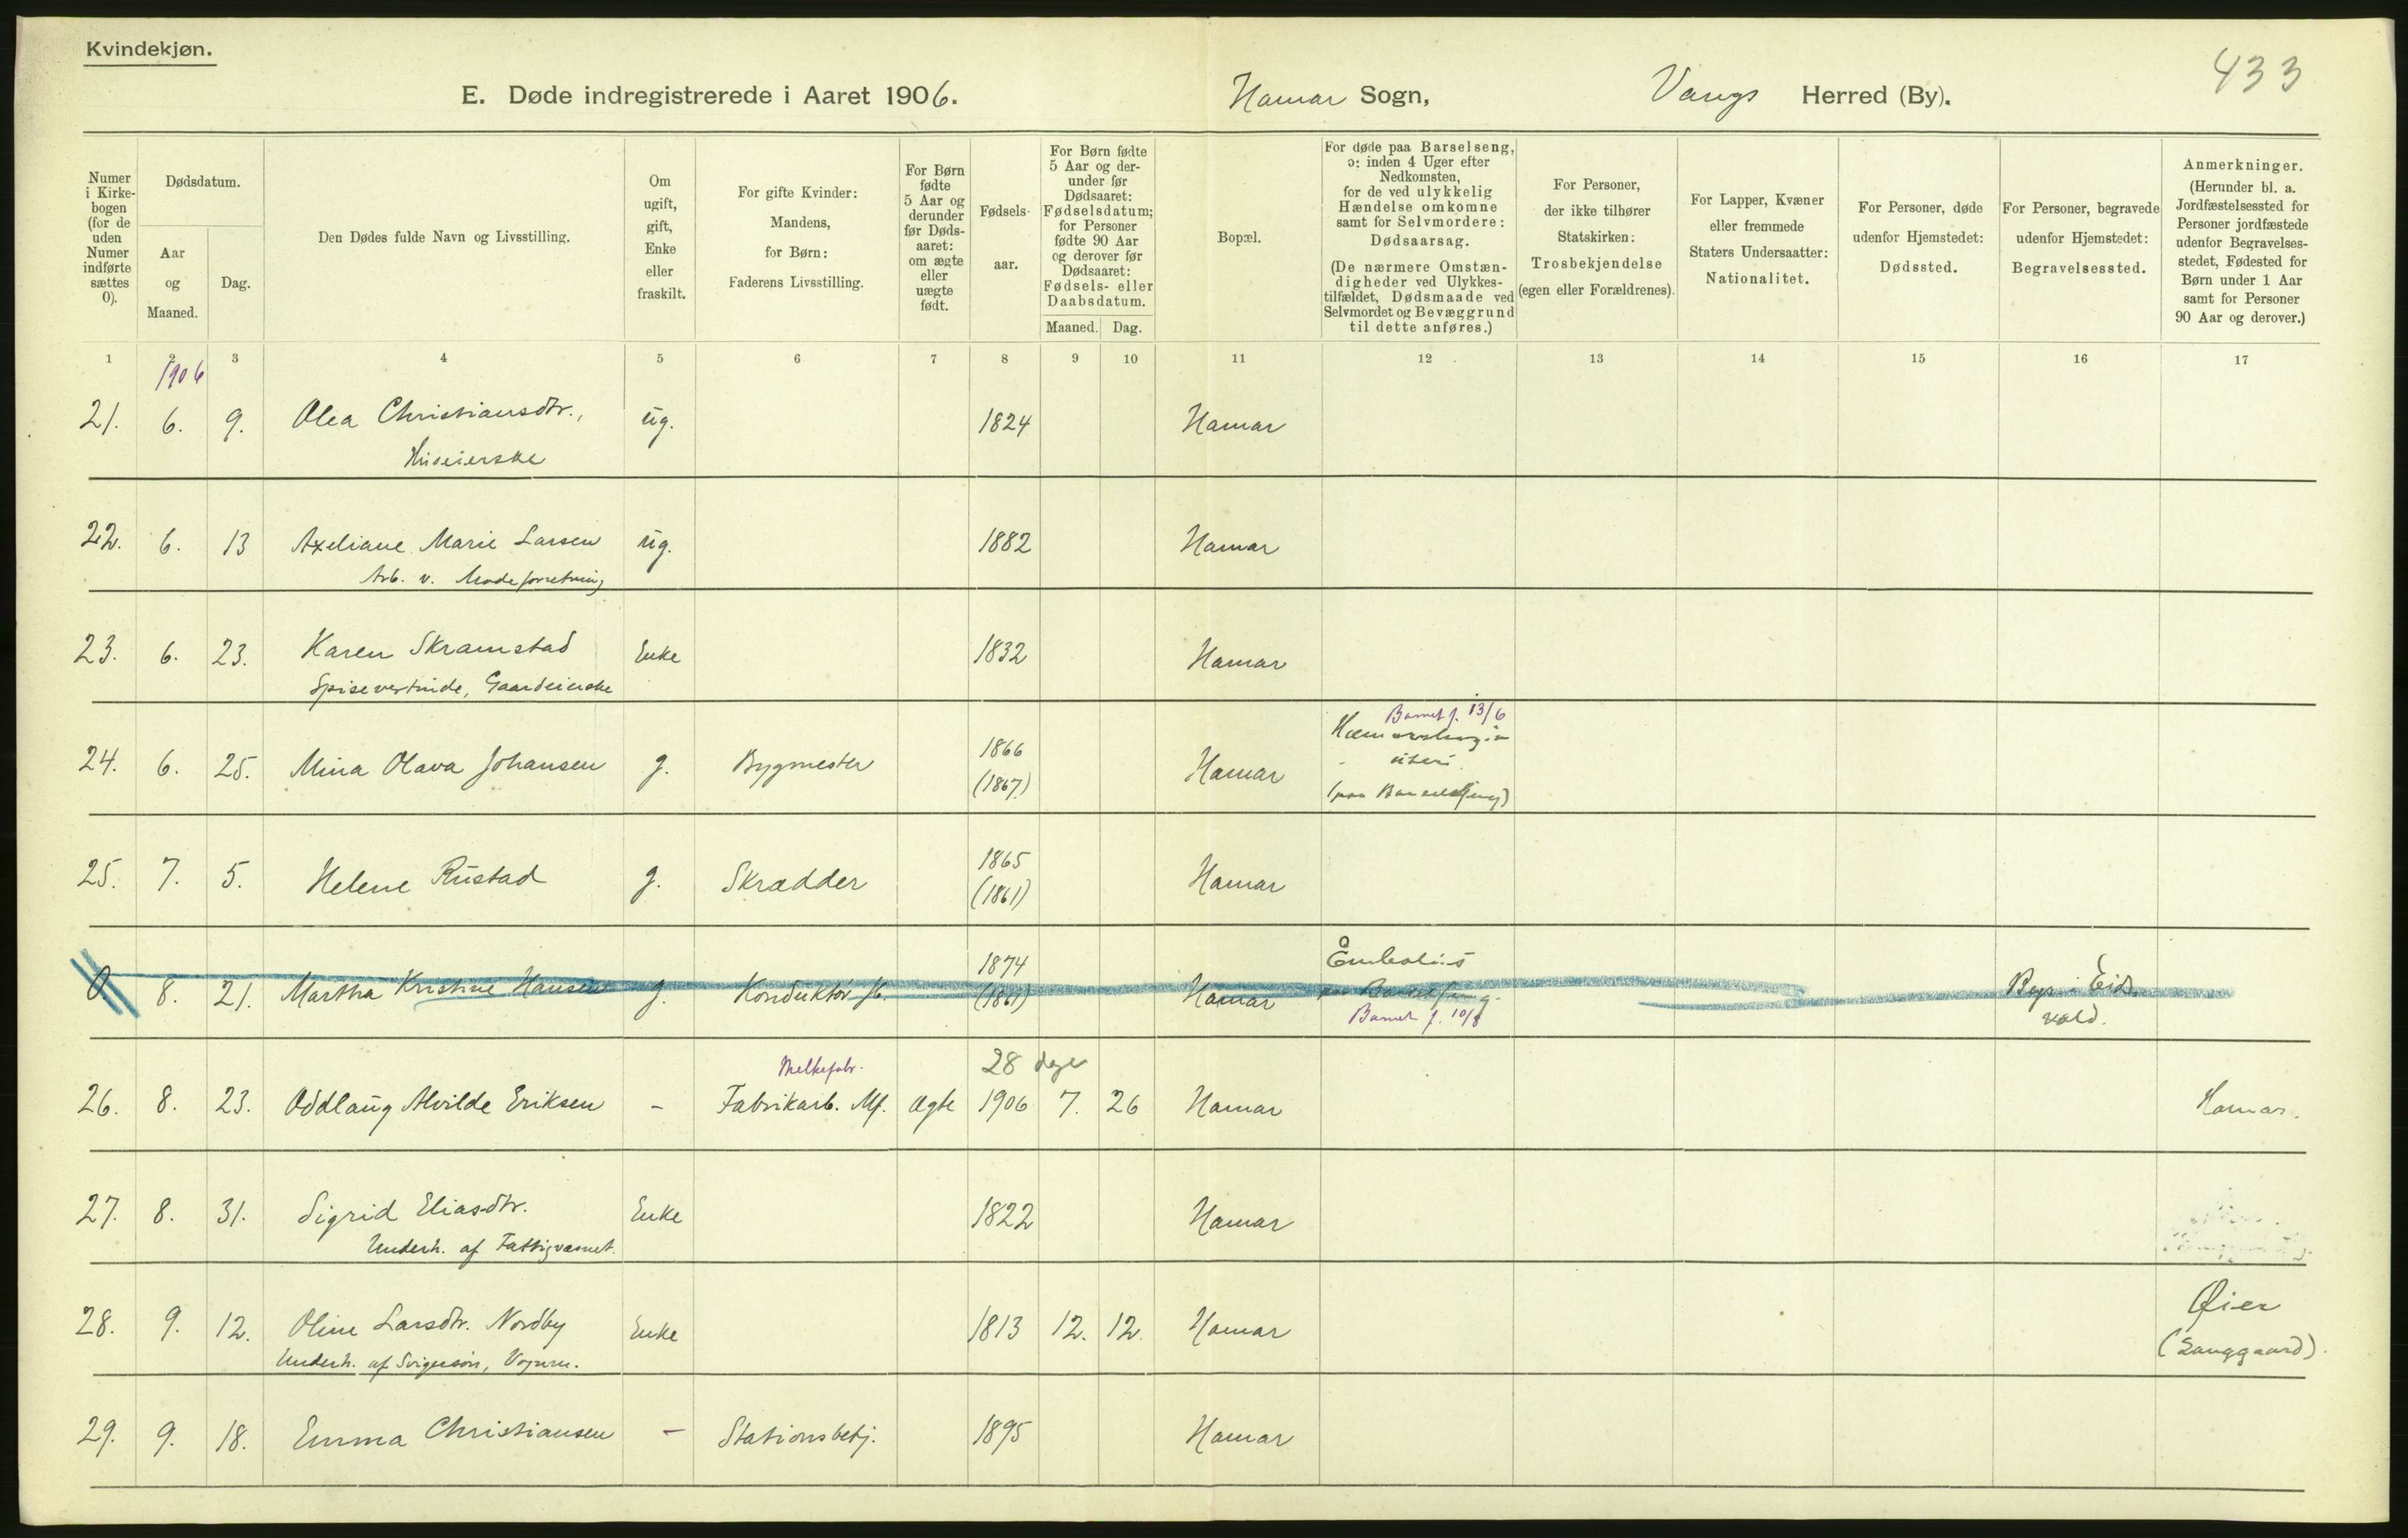 Kvindekjøn.
E. Døde indregistrerede i Aaret 1906. Hamar Sogn, Vangs Herred (By). 433
Numer i Kirke-bogen (for de uden Numer indførte sættes 0).
Dødsdatum.
Aar og Maaned.
Dag.
Den Dødes fulde Navn og Livsstilling.
Om ugift, gift, Enke eller fraskilt.
For gifte Kvinder: Mandens, for Børn: Faderens Livsstilling.
For Børn fødte 5 Aar og derunder før Døds-aaret: om ægte eller uægte født.
Fødsels-aar.
For Børn fødte 5 Aar og der-under før Dødsaaret: Fødselsdatum; for Personer fødte 90 Aar og derover før Dødsaaret: Fødsels- eller Daabsdatum.
Maaned. Dag.
Bopæl.
For døde paa Barselseng, ɔ: inden 4 Uger efter Nedkomsten, for de ved ulykkelig Hændelse omkomne samt for Selvmordere: Dødsaarsag. (De nærmere Omstæn-digheder ved Ulykkes-tilfældet, Dødsmaade ved Selvmordet og Bevæggrund til dette anføres.)
For Personer, der ikke tilhører Statskirken: Trosbekjendelse (egen eller Forældrenes).
For Lapper, Kvæner eller fremmede Staters Undersaatter: Nationalitet.
For Personer, døde udenfor Hjemstedet: Dødssted.
For Personer, begravede udenfor Hjemstedet: Begravelsessted.
Anmerkninger. (Herunder bl. a. Jordfæstelsessted for Personer jordfæstede udenfor Begravelses-stedet, Fødested for Børn under 1 Aar samt for Personer 90 Aar og derover.)
1 2 3 4 5 6 7 8 9 10 11 12 13 14 15 16 17
1906
21. 6. 9. Olea Christiansdtr., ug. 1824 Hamar
Huseierske
22. 6. 13 Axeliane Marie Larsen ug. 1882 Hamar
Arb. v. Modeforretning
23. 6. 23. Karen Skramstad Enke 1832 Hamar
Spisevertinde, Gaardeierske
Barnet f. 13/6
24. 6. 25. Mina Olava Johansen g. Bygmester 1866 (1867) Hamar Hæmorrhagia
uteri
(paa Barselseng)
25. 7. 5. Helene Rustad g. Skrædder 1865 (1861) Hamar
0. 8. 21. Martha Kristine Hansen g. Konduktør 1874 (1861) Hamar Embolus
paa Barselseng.
Barnet f. 10/8
Begr. i Eids
vold.
Melkefabr. 28 dage
26. 8. 23. Oddlaug Alvilde Eriksen - Fabrikarb. Mf. ægte 1906 7. 26 Hamar Hamar.
27. 8. 31. Sigrid Eliasdtr. Enke 1822 Hamar
Underh. af Fattigvæsnet.
28. 9. 12. Oline Larsdtr. Nordby Enke 1813 12. 12. Hamar Øier
Underh. af Svigersøn, Vognm. (Sanggaard).
29. 9. 18. Emma Christiansen - Stationsbetj. 1895 Hamar